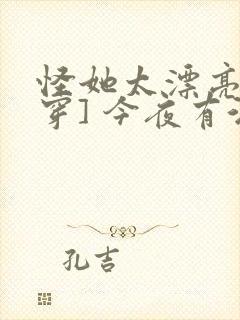 怪她太漂亮
穿] 今夜有
孔吉